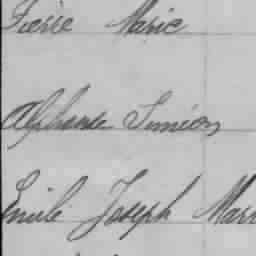 Pierre Marie
Alphonse Siméon
Emile Joseph Mari